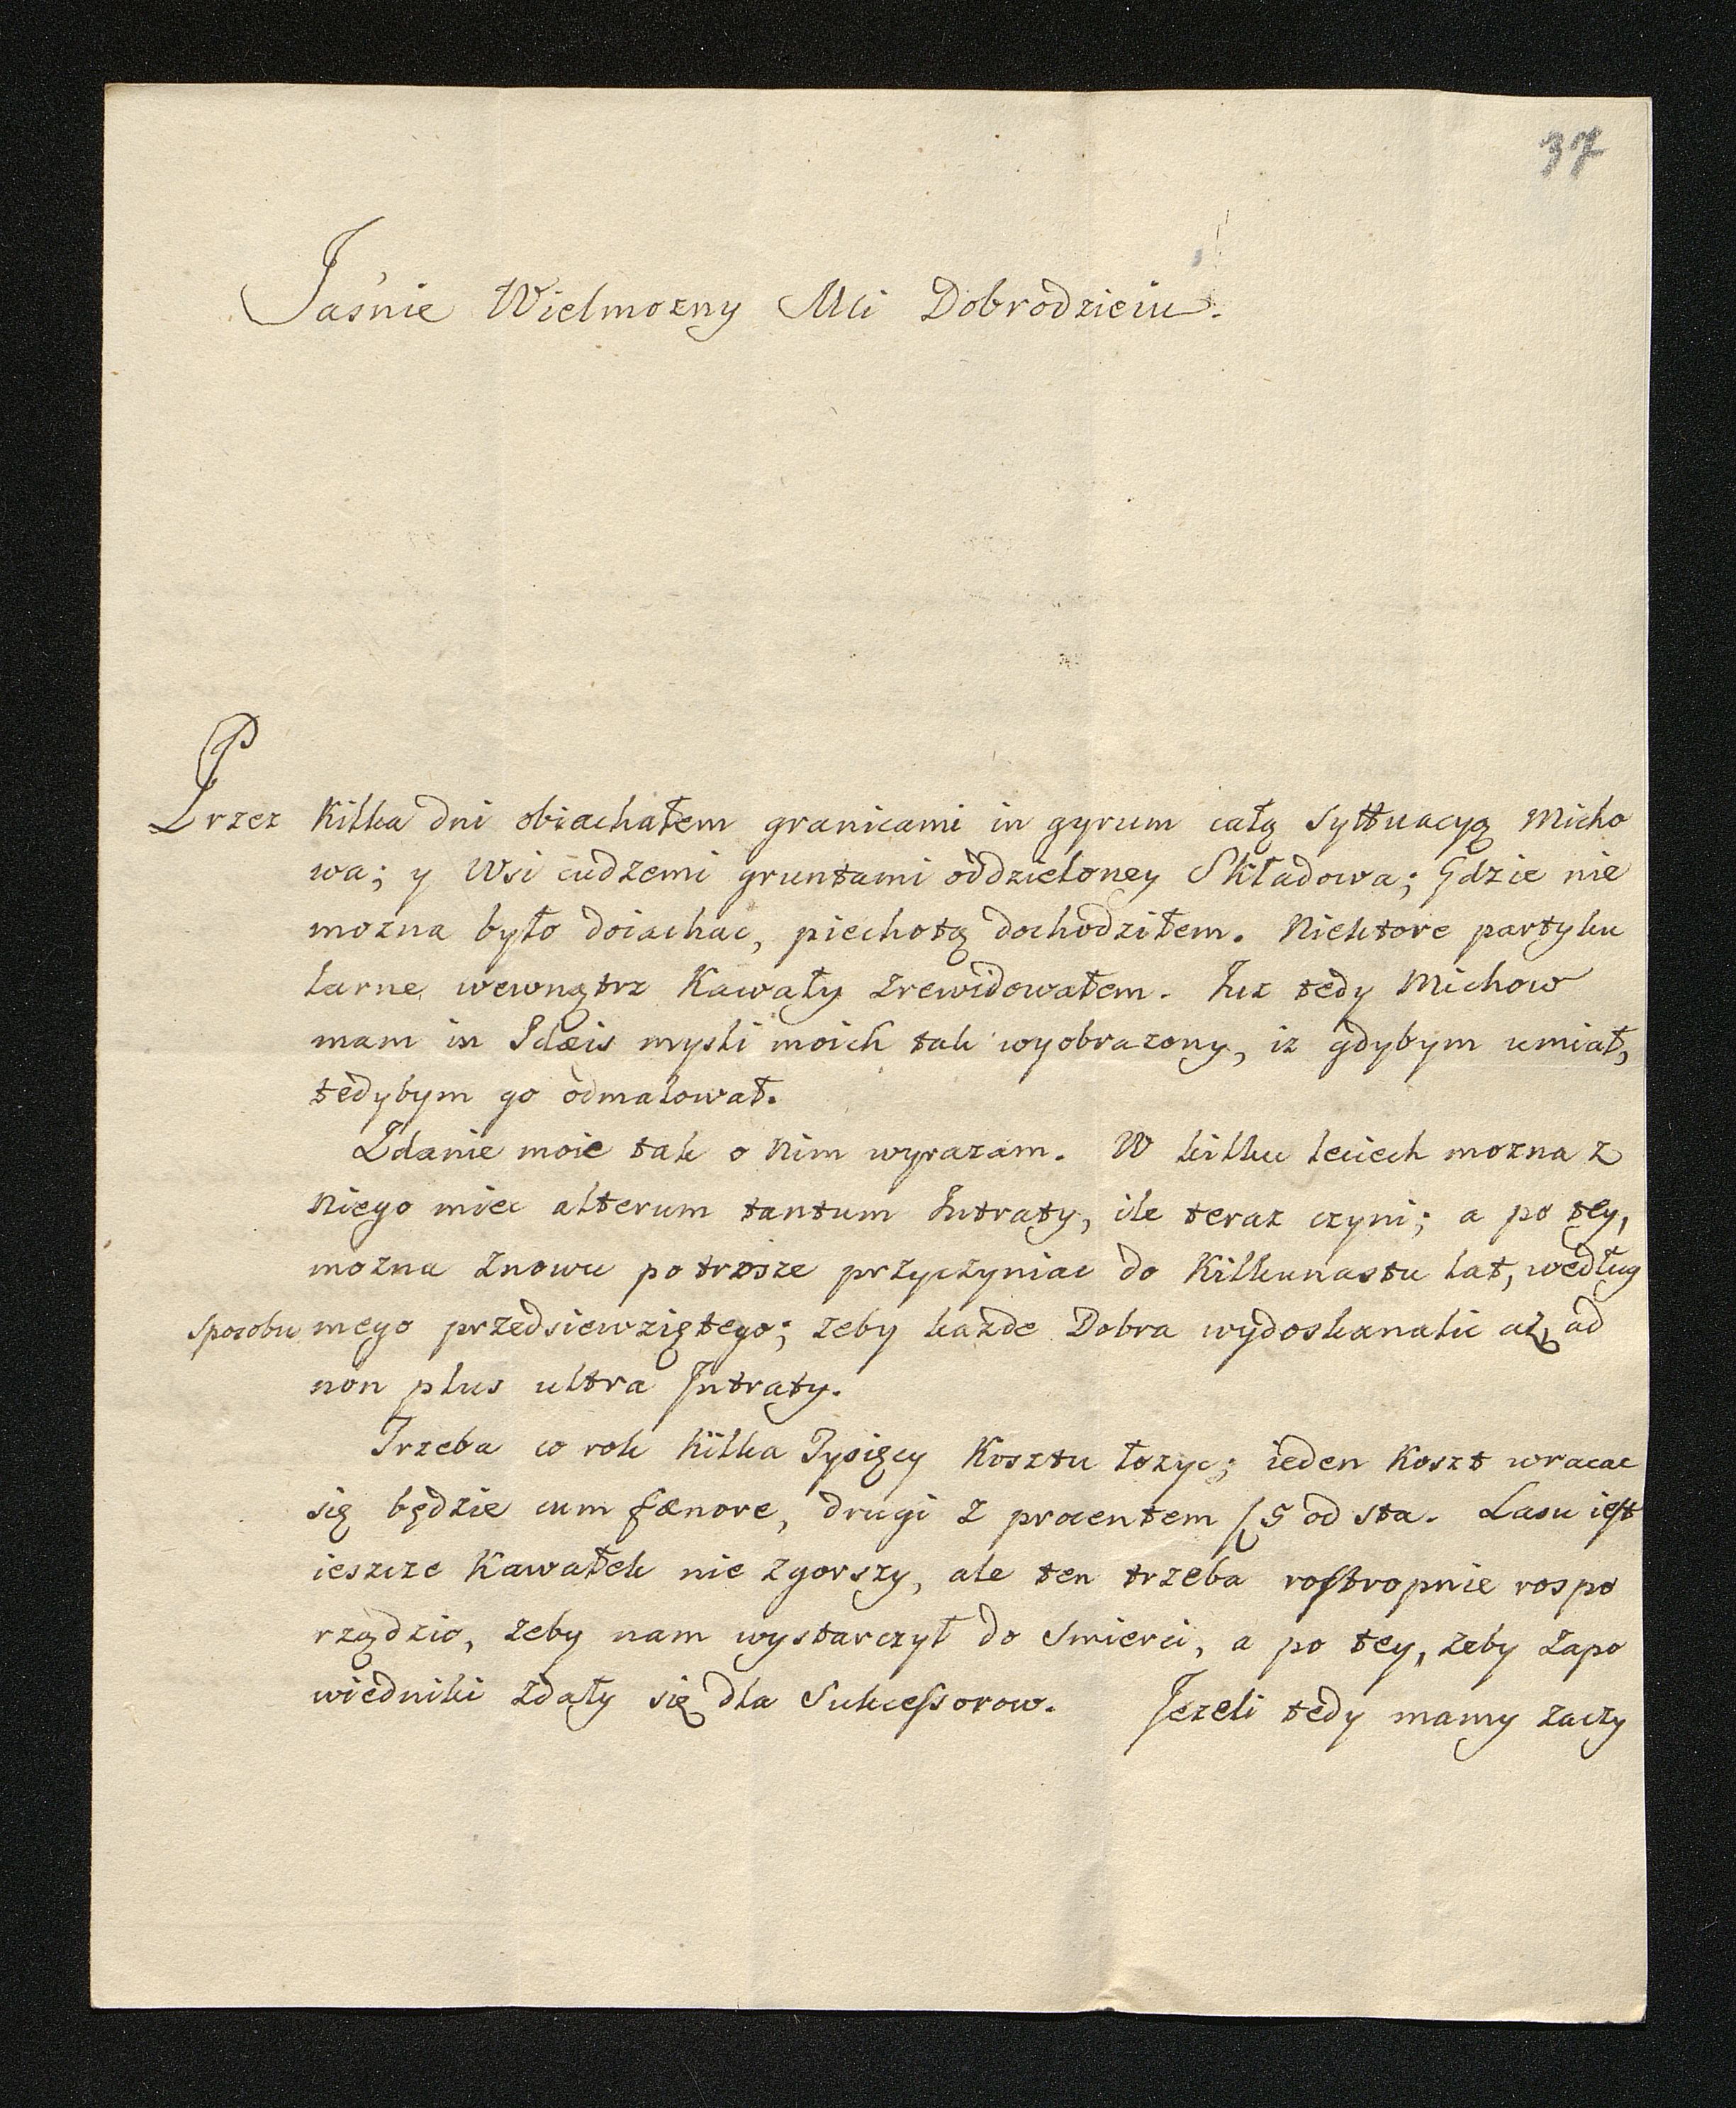 37
Jaśnie Wielmozny Mci Dobrodzieiu.
Przez Kilka dni obiachałem granicami in gyrum całą Syttuacyą Micho
wa; y Wsi cudzemi gruntami oddzieloney Składowa; Gdzie nie
mozna było doiachac, piechotą dochodziłem. Niektore partyku
larne wewnątrz Kawały zrewidowałem. Juz tedy Michow
mam in Idæis mysli moich tak wyobrazony, iz gdybym umiał,
tedybym go odmalował.
Zdanie moie tak o Nim wyrazam. W kilku leciech mozna z
Niego miec alterum tantum Jntraty, ile teraz czyni; a po tey,
mozna znowu po trosze przyczyniac do Kilkunastu lat, według
sposobu mego przedsiewziętego; zeby kazde Dobra wydoskanalic az ad
non plus ultra Jntraty.
Trzeba co rok kilka Tysięcy Kosztu łozyc; ieden Koszt wracac
się będzie cum fænore, drugi z procentem /5 od sta. Lasu iest
ieszcze Kawałek nie zgorszy, ale ten trzeba rostropnie rospo
rządzic, zeby nam wystarczył do Smierci, a po tey, zeby zapo
wiedniki zdały się dla Sukcessorow. Jezeli tedy mamy zaczy